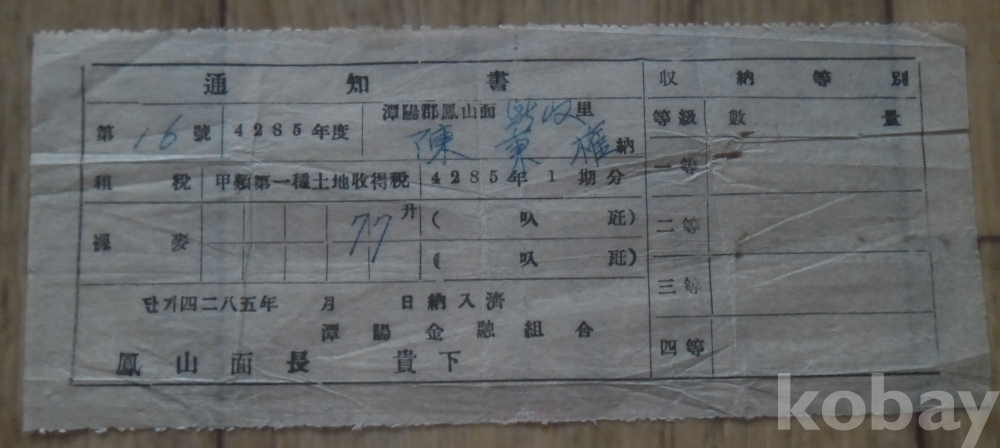 通知書
第16號 4285年度 潭陽郡鳳山面 里
陳 納
租稅 甲類第一種土地收得稅 4285年1期分
裸麥 77升 ( 叺 瓩)
( 叺 瓩)
단기四二八五年 月 日納入濟
潭陽金融組合
鳳山面長 貴下
収納等別
等級 數量
一等
二等
三等
四等
kobay